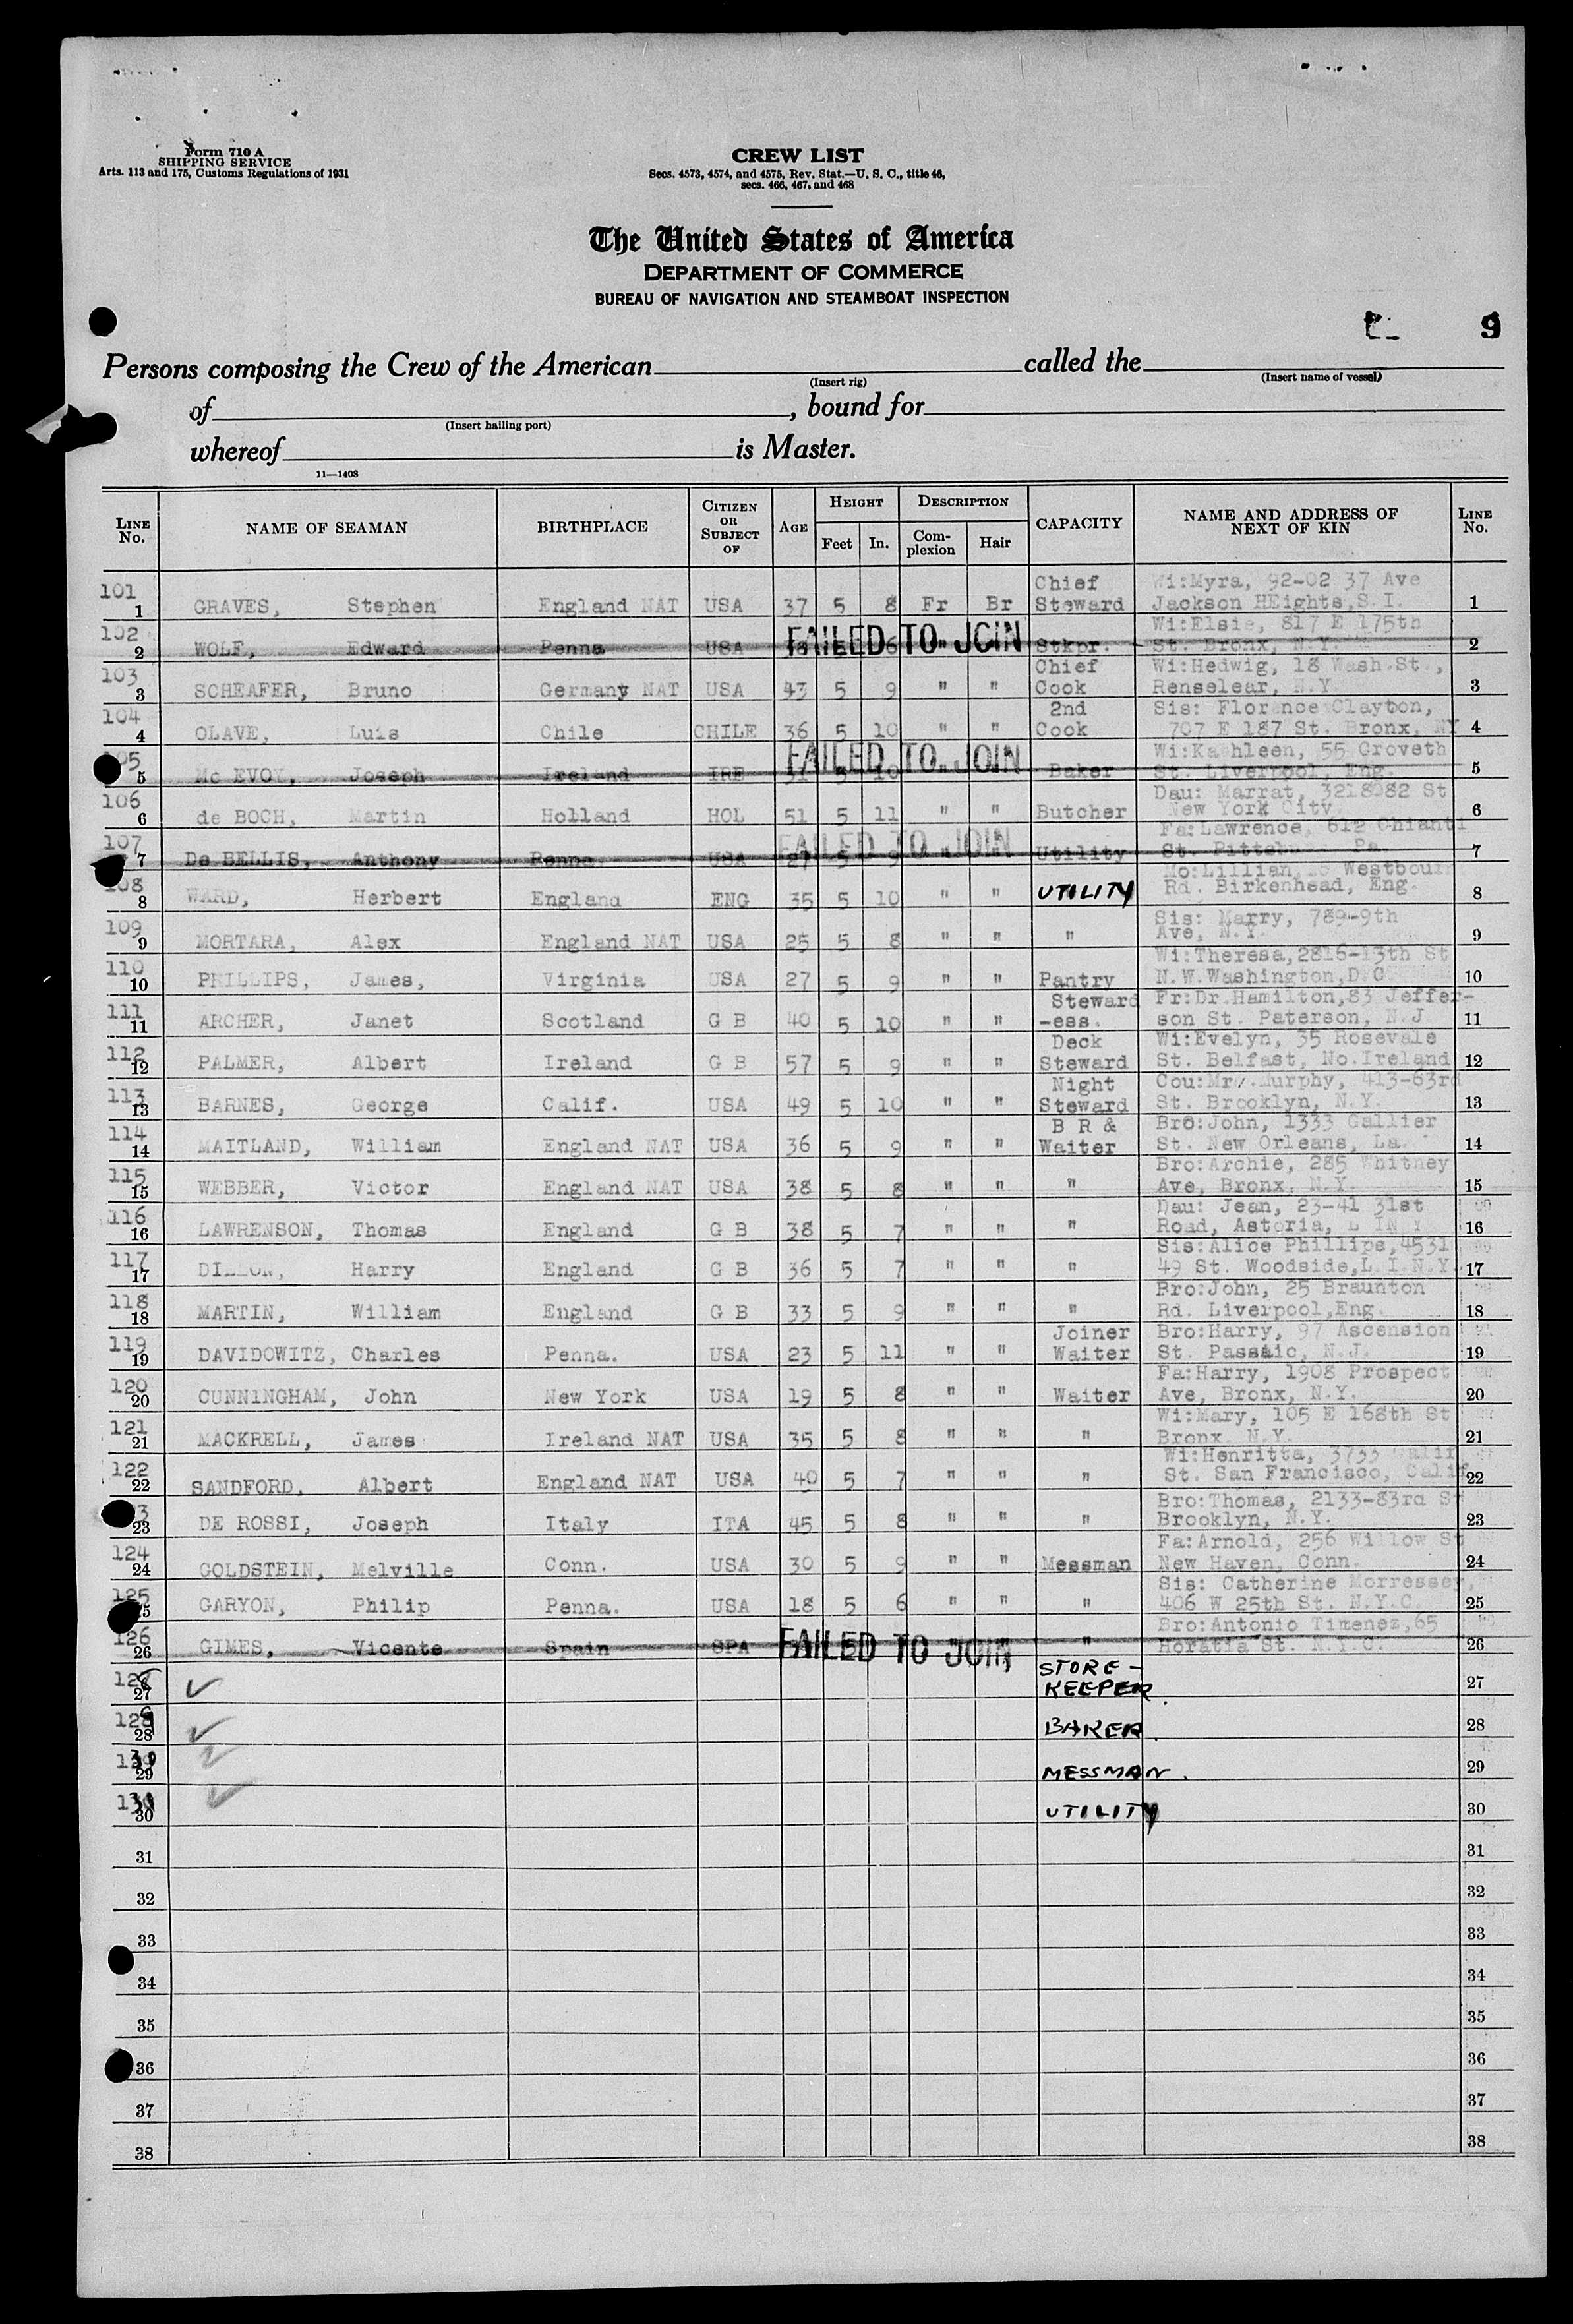 Form 710 A
SHIPPING SERVICE
Arts. 113 and 175, Customs Regulations of 1931
CREW LIST
Secs. 4573, 4574, and 4575, Rev. Stat.—U. S. C., title 46,
secs. 466, 467, and 468
The United States of America
DEPARTMENT OF COMMERCE
BUREAU OF NAVIGATION AND STEAMBOAT INSPECTION
9
Persons composing the Crew of the American called the
(Insert rig) (Insert name of vessel)
of , bound for
(Insert hailing port)
whereof is Master.
11—1408
LINE No. NAME OF SEAMAN BIRTHPLACE CITIZEN OR SUBJECT OF AGE HEIGHT Feet In. DESCRIPTION Complexion Hair CAPACITY NAME AND ADDRESS OF NEXT OF KIN LINE No.
101 Chief Wi:Myra, 92-02 37 Ave
1 GRAVES, Stephen England NAT USA 37 5 8 Fr Br Steward Jackson HEights,S.I. 1
102 FAILED TO JOIN Wi:Elsie, 817 E 175th
2 WOLF, Edward Penna USA 6 Stkpr. St. Bronx, N.Y. 2
103 Chief Wi:Hedwig, 18 Wash.St.,
3 SCHEAFER, Bruno Germany NAT USA 43 5 9 " " Cook Renselear, N.Y. 3
104 2nd Sis: Florence Clayton,
4 OLAVE, Luis Chile CHILE 36 5 10 " " Cook 707 E 187 St. Bronx, NY 4
05 FAILED TO JOIN Wi:Kathleen, 55 Croveth
5 Mc EVOY, Joseph Ireland IRE 5 10 Baker St. Liverpool, Eng. 5
106 Dau: Marrat, 3218082 St
6 de BOCH, Martin Holland HOL 51 5 11 " " Butcher New York City. 6
107 FAILED TO JOIN Fa:Lawrence, 612 Chianti
7 De BELLIS, Anthony Penna. USA 5 9 Utility St. Pa. 7
108 Mo:Lillian,
8 WARD, Herbert England ENG 35 5 10 " " UTILITY Rd. Birkenhead, Eng. 8
109 Sis: Marry, 789-9th
9 MORTARA, Alex England NAT USA 25 5 8 " " " Ave, N.Y. 9
110 Wi:Theresa,2816-13th St
10 PHILLIPS, James, Virginia USA 27 5 9 " " Pantry N.W.Washington,D.C 10
111 Steward Fr:Dr.Hamilton,83 Jeffer-
11 ARCHER, Janet Scotland G B 40 5 10 " " -ess. son St. Paterson, N.J. 11
112 Deck Wi:Evelyn, 35 Rosevale
12 PALMER, Albert Ireland G B 57 5 9 " " Steward St. Belfast, No.Ireland 12
113 Night Cou:Mr. Murphy, 413-63rd
13 BARNES, George Calif. USA 49 5 10 " " Steward St. Brooklyn, N.Y. 13
114 B R & Bro:John, 1333 Gallier
14 MAITLAND, William England NAT USA 36 5 9 " " Waiter St. New Orleans, La. 14
115 Bro:Archie, 285 Whitney
15 WEBBER, Victor England NAT USA 38 5 8 " " " Ave, Bronx, N.Y. 15
116 Dau: Jean, 23-41 31st
16 LAWRENSON, Thomas England G B 38 5 7 " " " Road, Astoria, 16
117 Sis:Alice Phillips,4531
17 DILLON, Harry England G B 36 5 7 " " " 49 St. Woodside,L.I.N.Y. 17
118 Bro:John, 25 Braunton
18 MARTIN, William England G B 33 5 9 " " " Rd. Liverpool,Eng. 18
119 Joiner Bro:Harry, 97 Ascension
19 DAVIDOWITZ, Charles Penna. USA 23 5 11 " " Waiter St. Passaic, N.J. 19
120 Fa:Harry, 1908 Prospect
20 CUNNINGHAM, John New York USA 19 5 8 " " Waiter Ave, Bronx, N.Y. 20
121 Wi:Mary, 105 E 168th St
21 MACKRELL, James Ireland NAT USA 35 5 8 " " " Bronx. N.Y. 21
122 Wi:Henritta, 3733 Calif
22 SANDFORD, Albert England NAT USA 40 5 7 " " " St. San Francisco, Calif 22
3 Bro:Thomas, 2133-83rd St
23 DE ROSSI, Joseph Italy ITA 45 5 8 " " " Brooklyn, N.Y. 23
124 Fa:Arnold, 256 Willow St
24 GOLDSTEIN, Melville Conn. USA 30 5 9 " " Messman New Haven, Conn. 24
125 Sis: Catherine Morressey,
25 GARYON, Philip Penna. USA 18 5 6 " " " 406 W 25th St. N.Y.C. 25
126 FAILED TO JOIN Bro:Antonio Timenez,65
26 GIMES, Vicente Spain SPA " Horatia St. N.Y.C. 26
STORE-
27 KEEPER. 27
28 BAKER 28
29 MESSMAN. 29
30 UTILITY 30
31 31
32 32
33 33
34 34
35 35
36 36
37 37
38 38